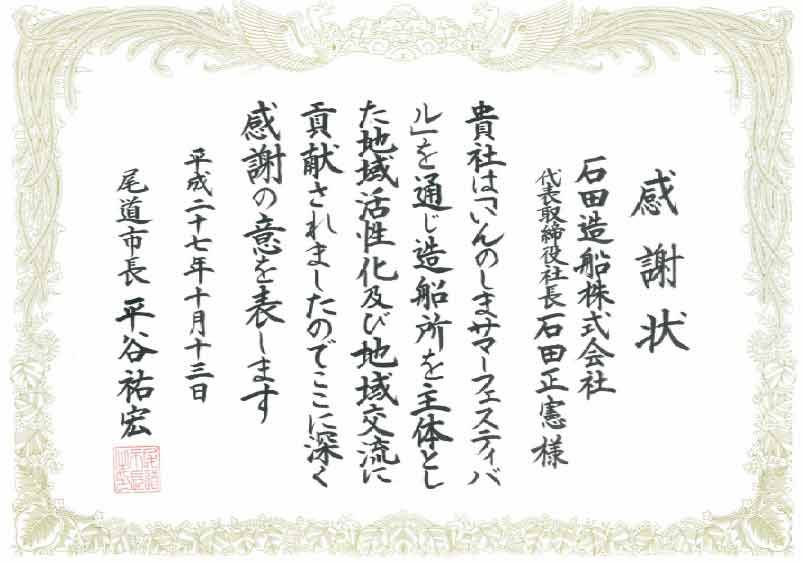 感謝状
石田造船株式会社
代表取締役社長 石田正憲様
貴社は「いんのしまサマーフェスティバ
ル」を通じ造船所を主体とし
た地域活性化及び地域交流に
貢献されましたのでここに深く
感謝の意を表します
平成二十七年十月十三日
尾道市長 平谷祐宏